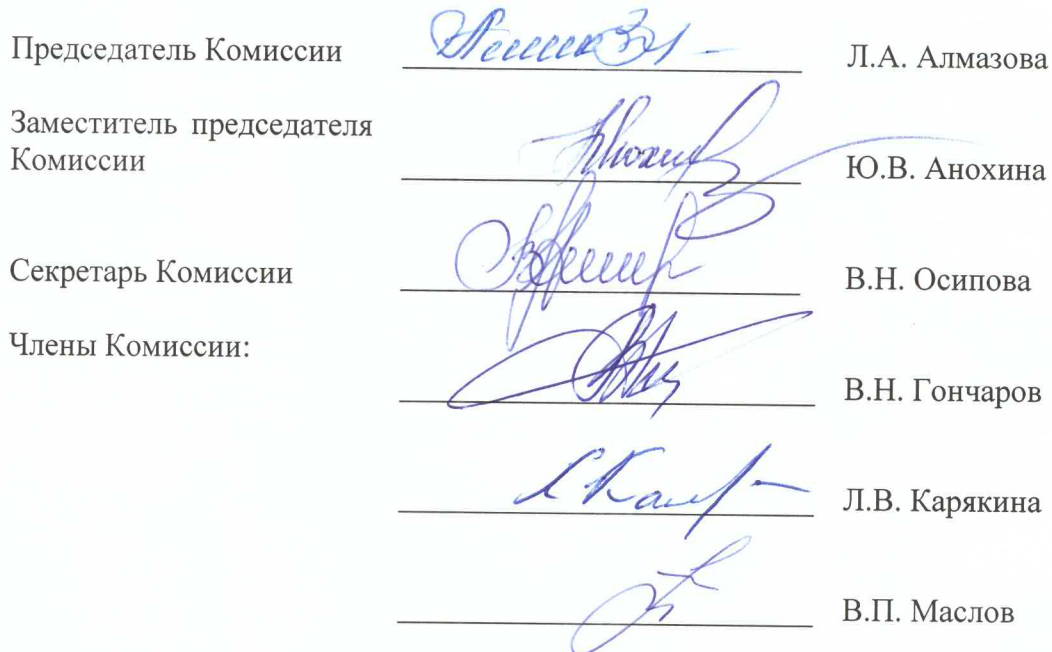 Председатель Комиссии Л.А. Алмазова
Заместитель председателя
Комиссии Ю.В. Анохина
Секретарь Комиссии В.Н. Осипова
Члены Комиссии:
В.Н. Гончаров
Л.В. Карякина
В.П. Маслов